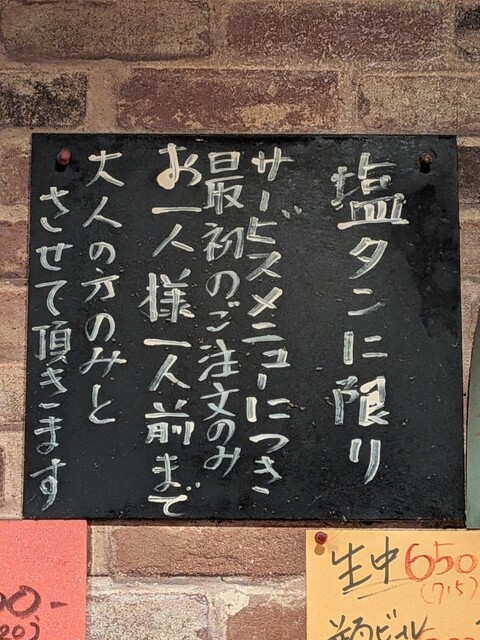 塩タンに限り
サービスメニューにつき
最初のご注文のみ
お一人様一人前まで
大人の方のみと
させて頂きます
生中650
(715)
00-
20)